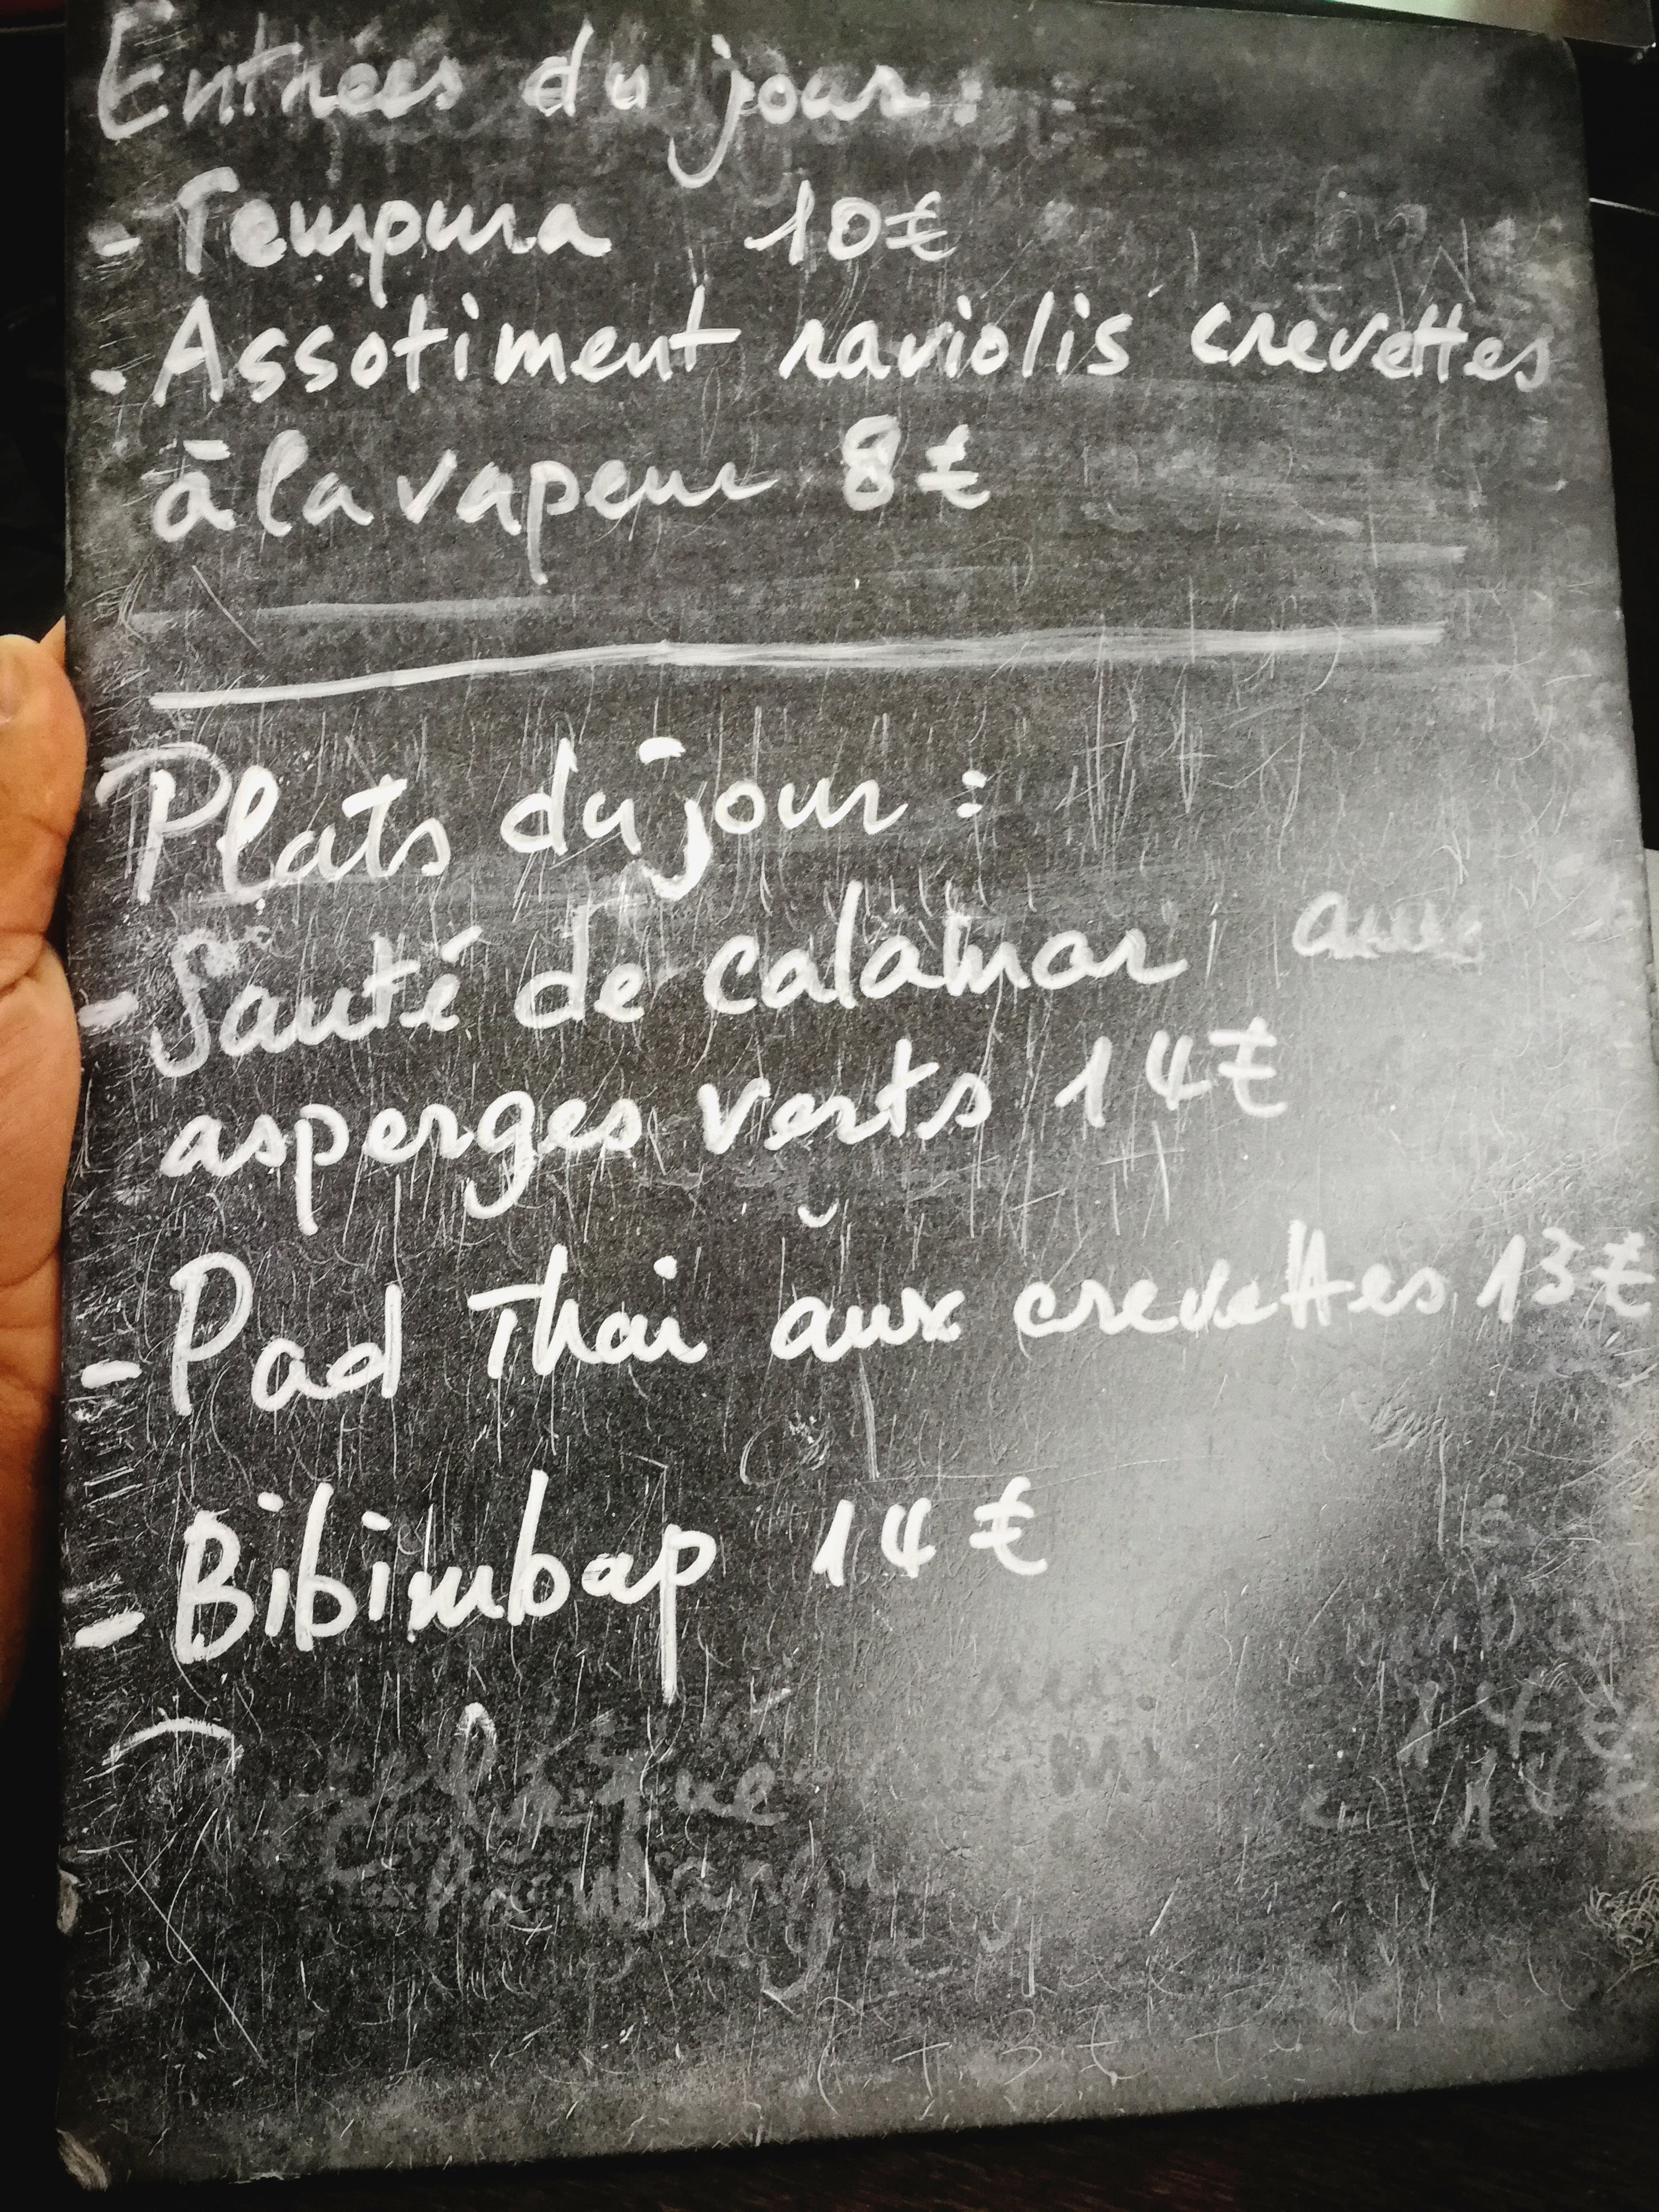 Entrées du jour :
- Tempura 10€
- Assotiment raviolis crevettes
à la vapeur 8€
Plats du jour :
- Sauté de calamar aux
asperges verts 14€
- Pad Thai aux crevettes 13€
- Bibimbap 14€